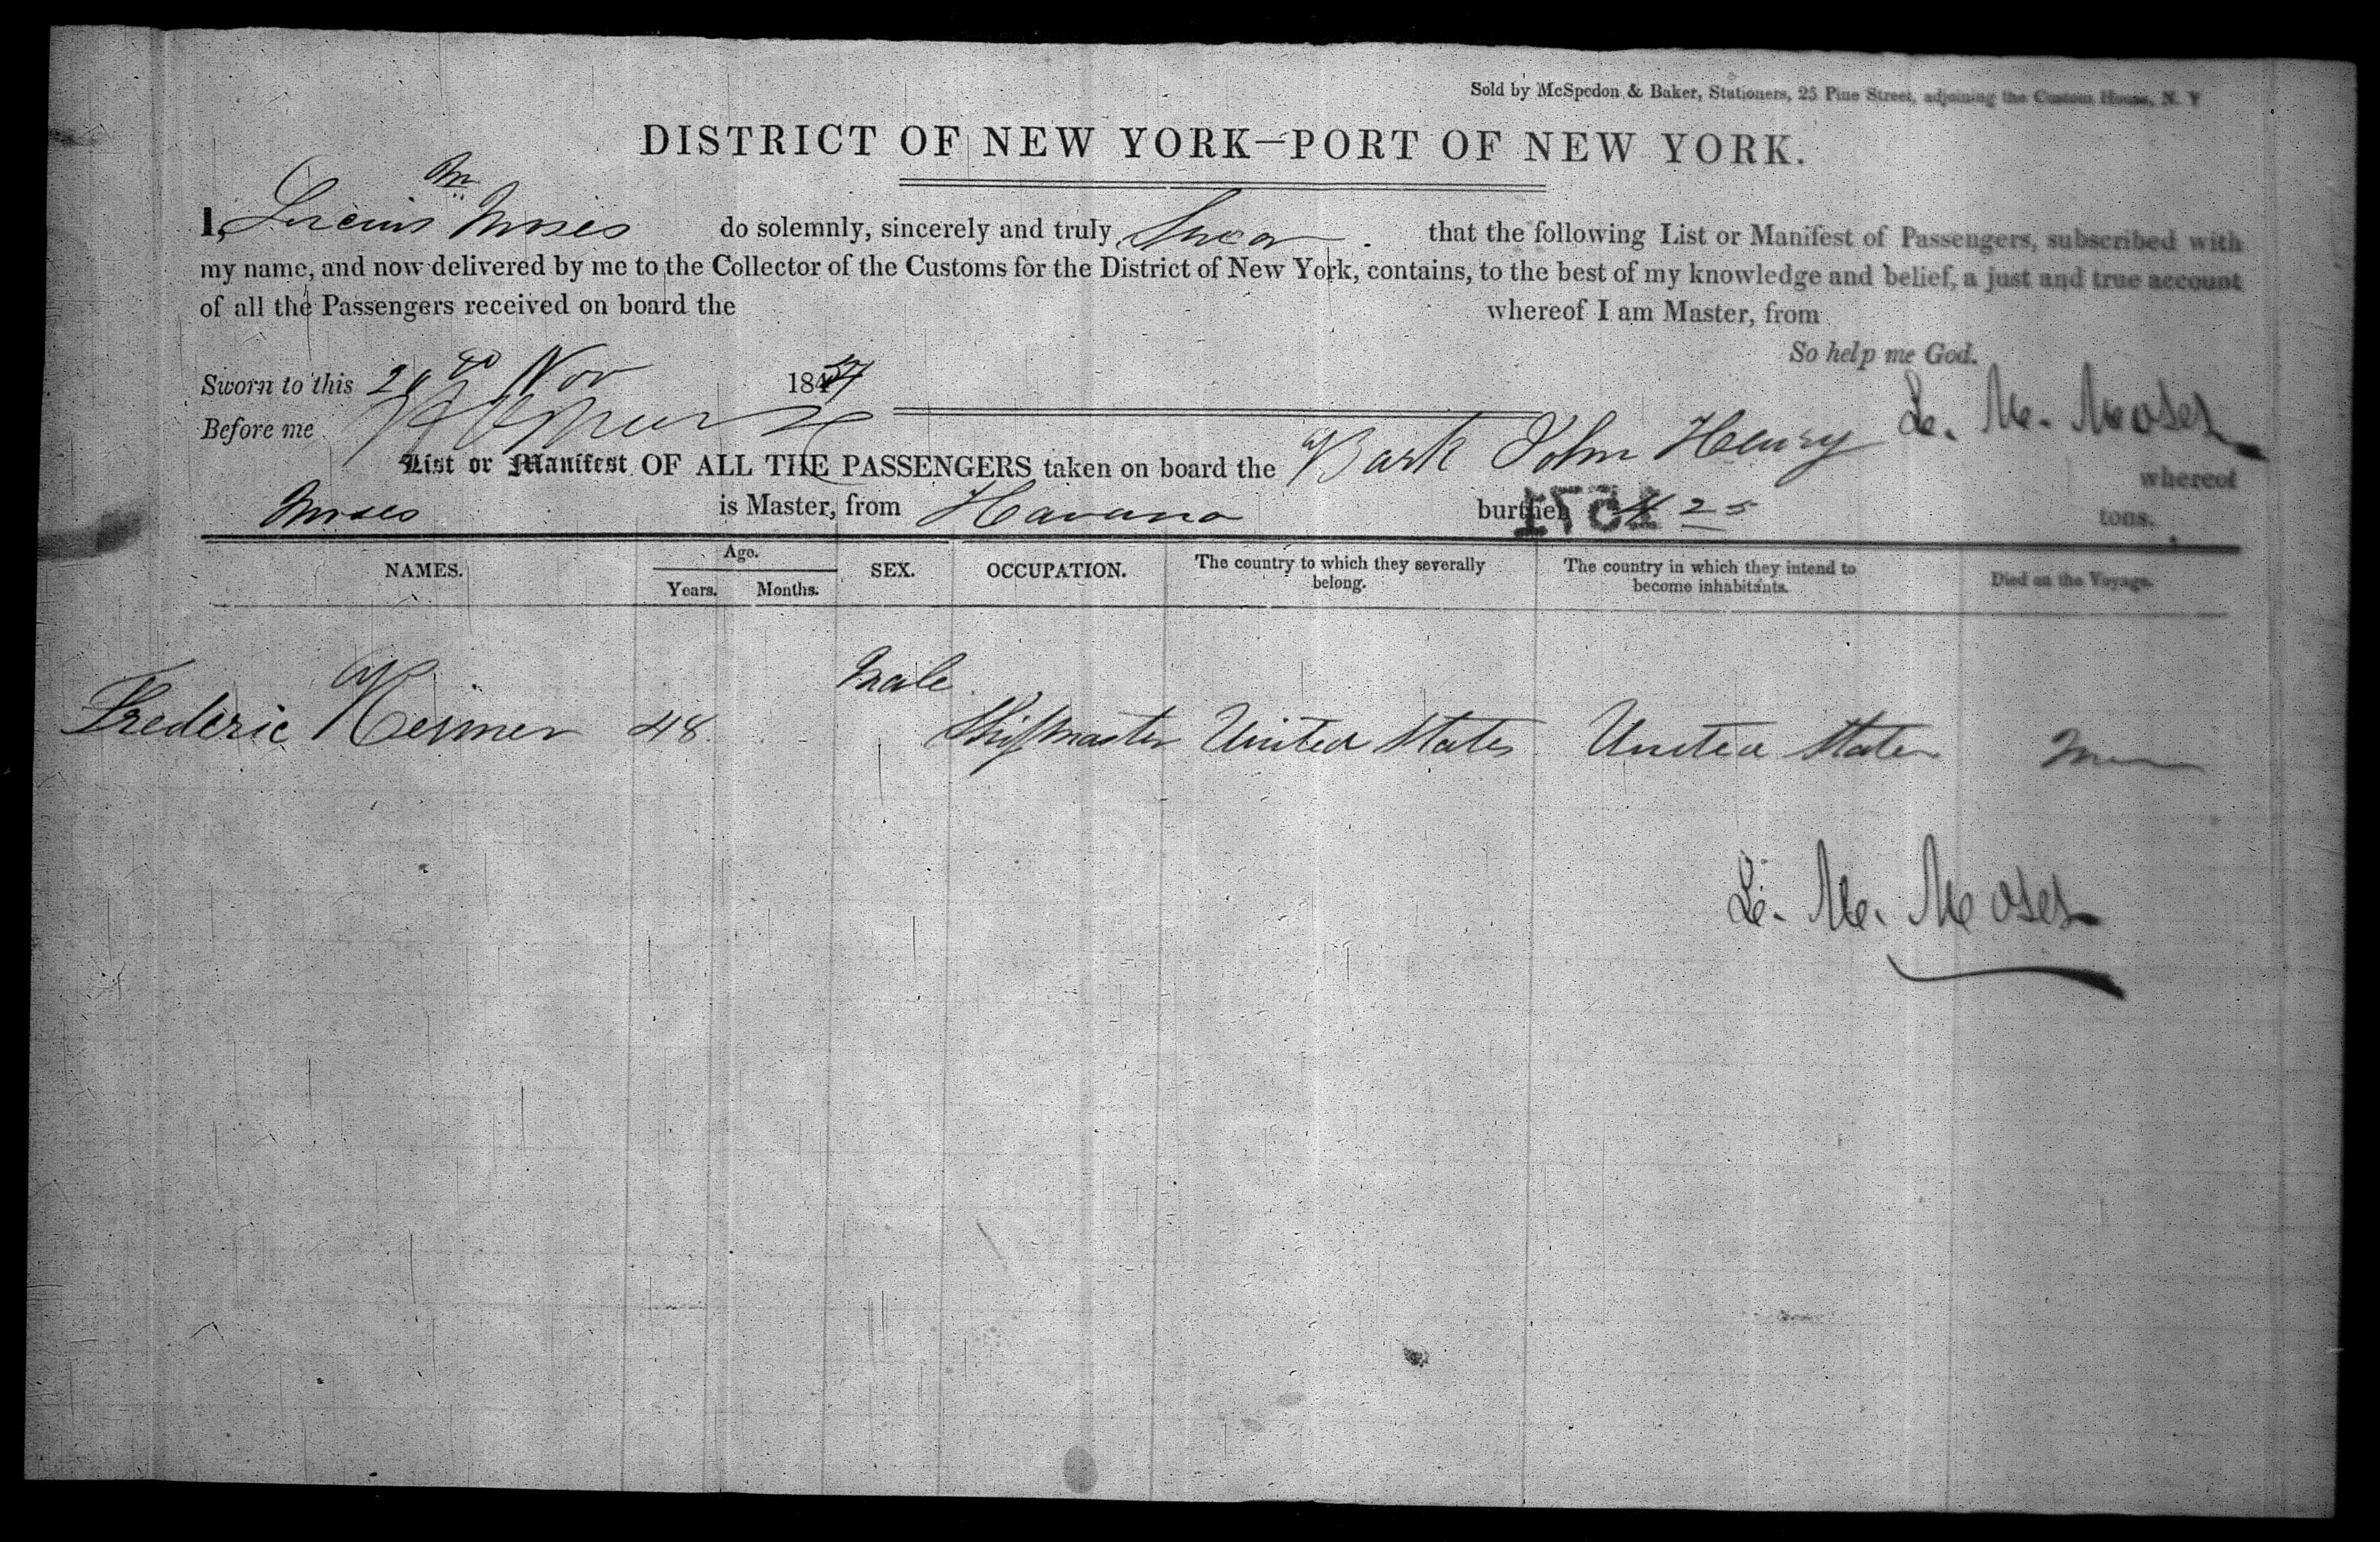 Sold by McSpedon & Baker, Stationers, 25 Pine Street, adjoining the Custom House, N. Y
DISTRICT OF NEW YORK—PORT OF NEW YORK.
I, Lucius M Moses do solemnly, sincerely and truly Swear that the following List or Manifest of Passengers, subscribed with
my name, and now delivered by me to the Collector of the Customs for the District of New York, contains, to the best of my knowledge and belief, a just and true account
of all the Passengers received on board the whereof I am Master, from
So help me God.
Sworn to this Nov 1857
L. M. Moses
Before me
List or Manifest OF ALL THE PASSENGERS taken on board the Bark John Henry whereof
Moses is Master, from Havana burthen 425 tons.
NAMES. Age. SEX. OCCUPATION. The country to which they severally belong. The country in which they intend to become inhabitants. Died on the Voyage.
Years. Months.
Frederic 48 Male Shipmaster United States United States
L. M. Moses